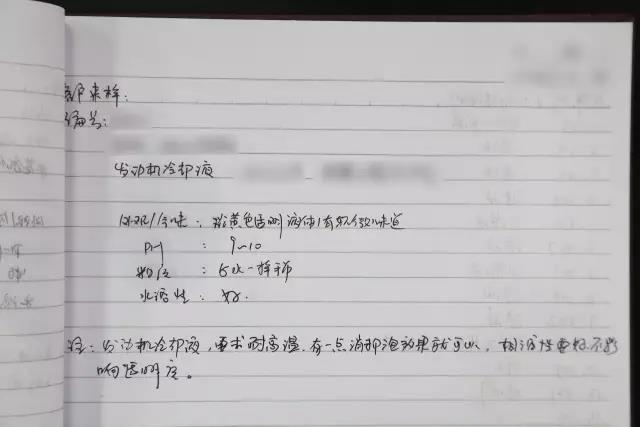 部来样：
编号：
发动机冷却液
外观/气味：淡黄色透明液体，有轻微味道
PH：9~10
粘度：与水一样稀
水溶性：好.
注：发动机冷却液，要求耐高温，有一点消抑泡效果就可以，相溶性要好不影
响透明度。